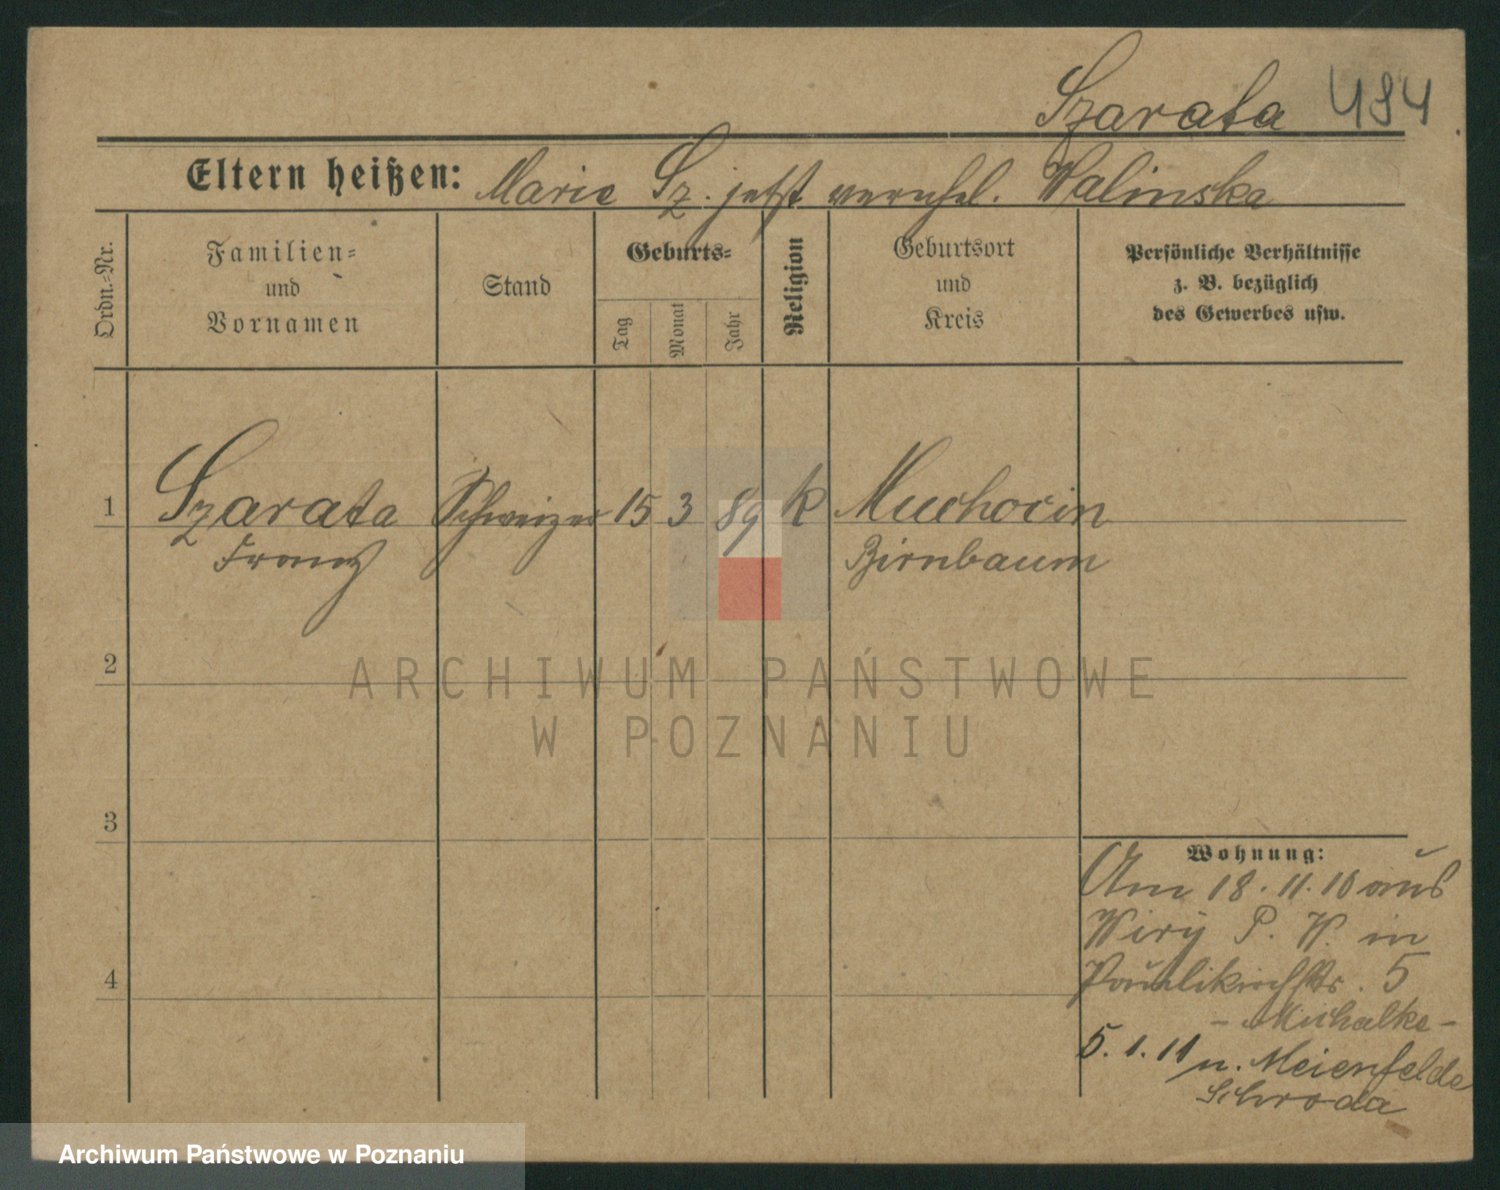 Szarata 484
Eltern heißen: Marie Sz. jetzt verehel. Walinska
Ordn.=Nr.
Familien=
und
Vornamen
Stand
Geburts=
Tag
Monat
Jahr
Religion
Geburtsort
und
Kreis
Persönliche Verhältnisse
z. B. bezüglich
des Gewerbes usw.
1 Szarata Schweizer 15 3 89 k Muchocin
Franz Birnbaum
2
ARCHIWUM PAŃSTWOWE
W POZNANIU
3
Wohnung:
Am 18.11.10 aus
Wiry P. W. in
Paulikirchstr. 5
- Michalke -
4
5.1.11 n. Meienfelde
Schroda
Archiwum Państwowe w Poznaniu